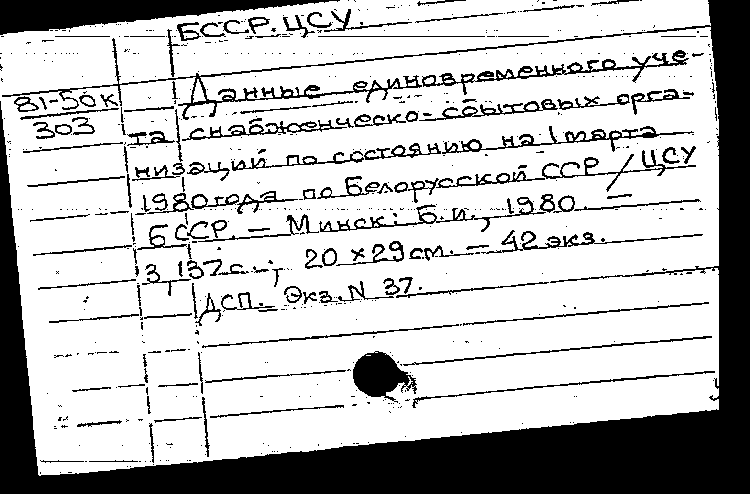 БССР. ЦСУ.
81-50к
303
Данные единовременного уче-
та снабженческо-сбытовых орга-
низаций по состоянию на 1 марта
1980 года по Белорусской ССР / ЦСУ
БССР. — Минск: Б.и., 1980. —
3, 137с.; 20 × 29 см. — 42 экз.
ДСП. Экз. N 37.